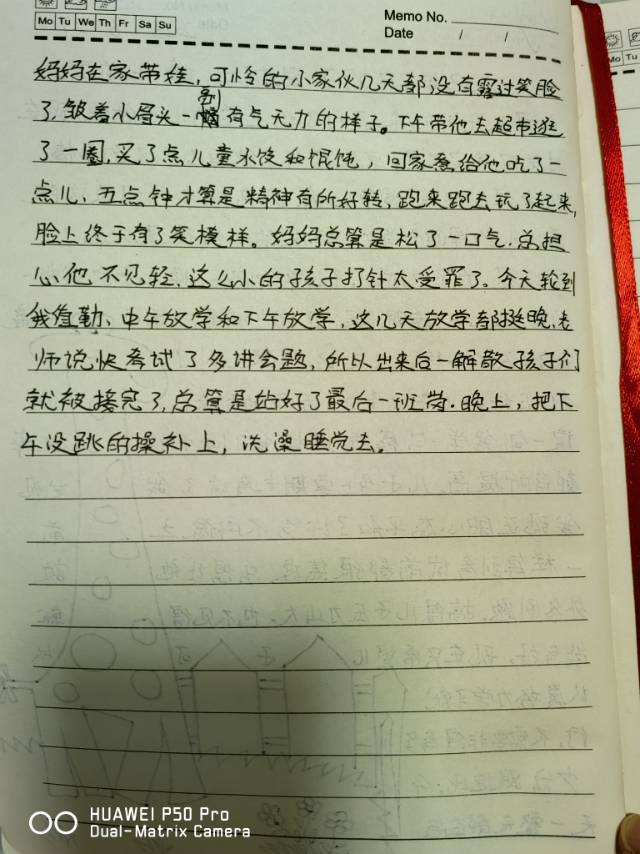 Mo Tu We Th Fr Sa Su
Memo No.
Date / /
Mo Tu
妈妈在家带娃，可怜的小家伙几天都没有露过笑脸
了，皱着小眉头一副有气无力的样子。下午带他去超市逛
了一圈，买了点儿童水饺和馄饨，回家煮给他吃了一
点儿、五点钟才算是精神有所好转，跑来跑去玩了起来，
脸上终于有了笑模样。妈妈总算是松了一口气.总担
心他不见轻，这么小的孩子打针太受罪了。今天轮到
我值勤、中午放学和下午放学，这几天放学都挺晚，老
师说快考试了多讲会题，所以出来后一解散孩子们
就被接完了，总算是站好了最后一班岗.晚上，把下
午没跳的操补上，洗澡睡觉去。
HUAWEI P50 Pro
Dual-Matrix Camera